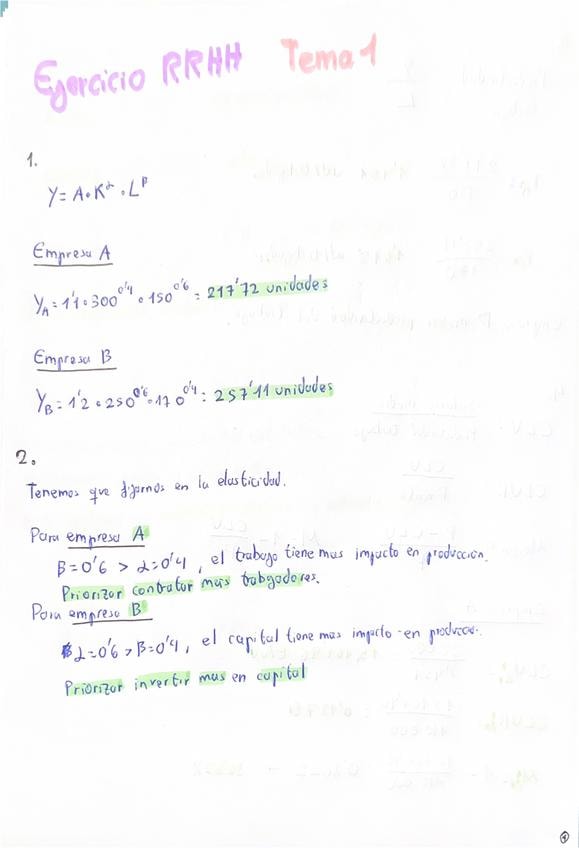 Ejercicio RRHH Tema 1
1.
Y = A • K^α • L^β
Empresa A
Y_A = 1'1 • 300^0'4 • 150^0'6 = 217'72 unidades
Empresa B
Y_B = 1'2 • 250^0'6 • 170^0'4 = 257'11 unidades
2.
Tenemos que fijarnos en la elasticidad.
Para empresa A
β = 0'6 > α = 0'4, el trabajo tiene mas impacto en producción.
Priorizar contratar mas trabajadores.
Para empresa B
α = 0'6 > β = 0'4, el capital tiene mas impacto en produccion.
Priorizar invertir mas en capital
1